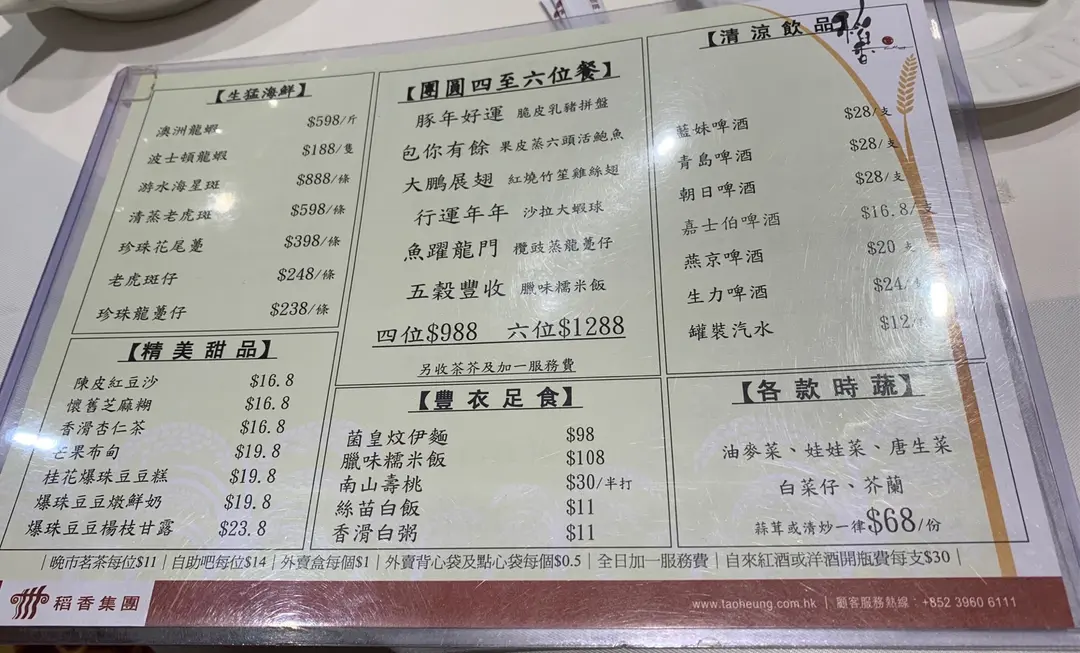 稻香
【生猛海鮮】
澳洲龍蝦 $598/斤
波士頓龍蝦 $188/隻
游水海星斑 $888/條
清蒸老虎斑 $598/條
珍珠花尾躉 $398/條
老虎斑仔 $248/條
珍珠龍躉仔 $238/條
【精美甜品】
陳皮紅豆沙 $16.8
懷舊芝麻糊 $16.8
香滑杏仁茶 $16.8
芒果布甸 $19.8
桂花爆珠豆豆糕 $19.8
爆珠豆豆燉鮮奶 $19.8
爆珠豆豆楊枝甘露 $23.8
【團圓四至六位餐】
豚年好運 脆皮乳豬拼盤
包你有餘 果皮蒸六頭活鮑魚
大鵬展翅 紅燒竹笙雞絲翅
行運年年 沙拉大蝦球
魚躍龍門 欖豉蒸龍躉仔
五穀豐收 臘味糯米飯
四位$988 六位$1288
另收茶芥及加一服務費
【豐衣足食】
菌皇炆伊麵 $98
臘味糯米飯 $108
南山壽桃 $30/半打
絲苗白飯 $11
香滑白粥 $11
【清涼飲品】
藍妹啤酒 $28/支
青島啤酒 $28/支
朝日啤酒 $28/支
嘉士伯啤酒 $16.8/支
燕京啤酒 $20 支
生力啤酒 $24/
罐裝汽水 $12/
【各款時蔬】
油麥菜、娃娃菜、唐生菜
白菜仔、芥蘭
蒜茸或清炒一律$68/份
|晚市茗茶每位$11|自助吧每位$14|外賣盒每個$1|外賣背心袋及點心袋每個$0.5|全日加一服務費|自來紅酒或洋酒開瓶費每支$30|
稻香集團
www.taoheung.com.hk | 顧客服務熱線：+852 3960 6111